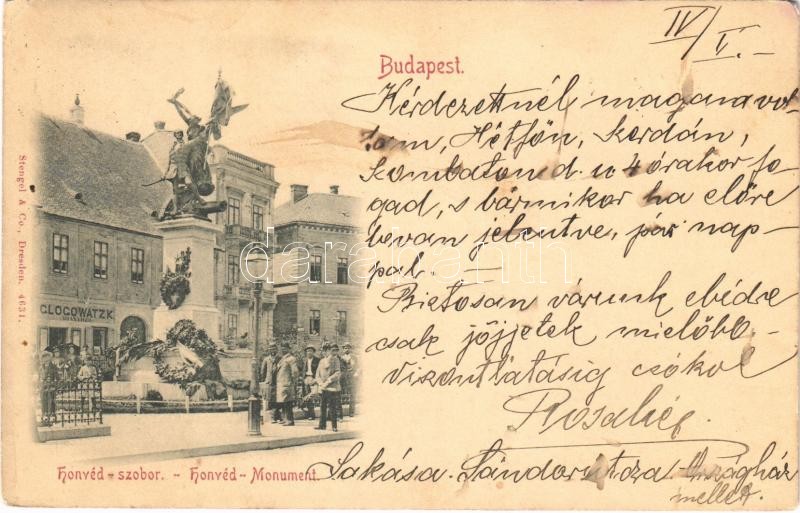 IV/V.-
Budapest.
Kérdezettnél magam vol-
tam, Hétfőn, Szerdán,
Szombaton d. u 4 órakor fo-
gad, s bármikor ha előre
be van jelentve, pár nap-
pal. —
Biztosan várunk ebédre
csak jőjjetek mielőbb
viszontlátásig csókol
Lakása. Sándor utza. Országház
mellett.
Stengel & Co., Dresden. 4631.
GLOGOWATZK
Honvéd-szobor. - Honvéd-Monument.
darabanth